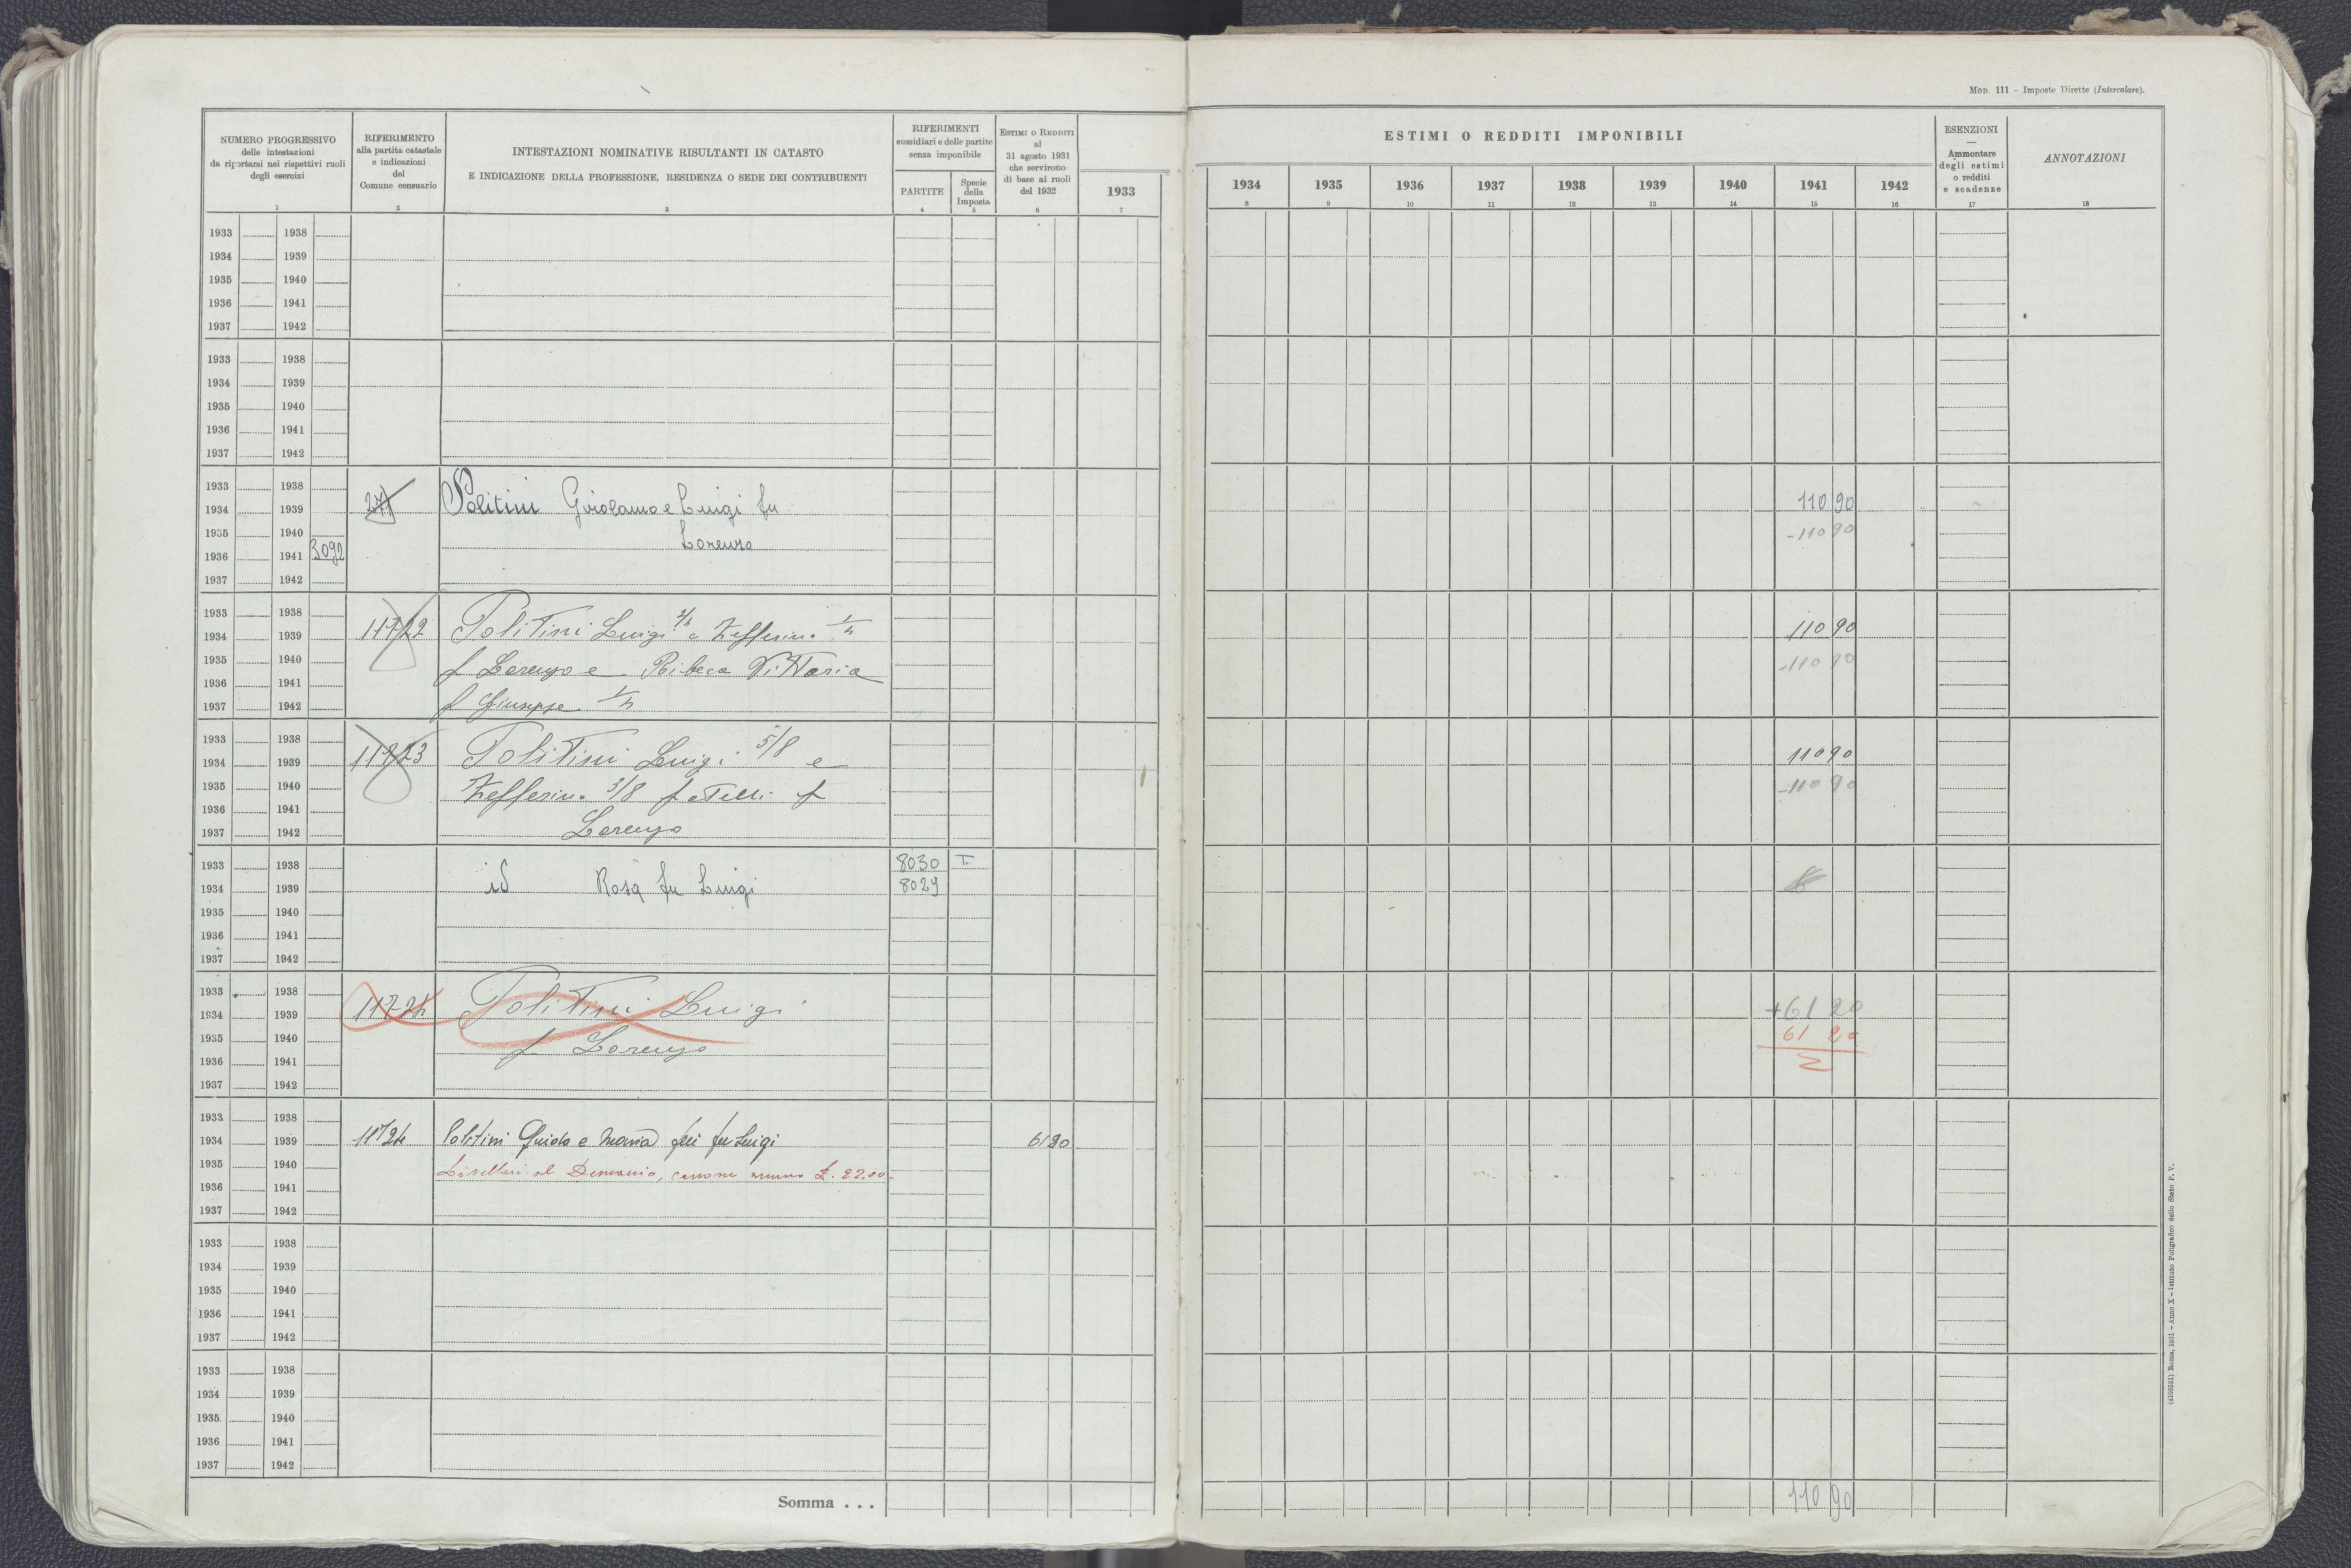 MOD. 111 - Imposte Dirette (Intercalare).
NUMERO PROGRESSIVO
delle intestazioni
da riportarsi nei rispettivi ruoli
degli esercizi
1
RIFERIMENTO
alla partita catastale
e indicazioni
del
Comune censuario
2
INTESTAZIONI NOMINATIVE RISULTANTI IN CATASTO
E INDICAZIONE DELLA PROFESSIONE, RESIDENZA O SEDE DEI CONTRIBUENTI
3
RIFERIMENTI
sussidiari e delle partite
senza imponibile
PARTITE
4
Specie
della
Imposta
5
ESTIMI O REDDITI
al
31 agosto 1931
che servirono
di base ai ruoli
del 1932
6
1933
7
ESTIMI O REDDITI IMPONIBILI
1934 1935 1936 1937 1938 1939 1940 1941 1942
8 9 10 11 12 13 14 15 16
ESENZIONI
Ammontare
degli estimi
o redditi
e scadenze
17
ANNOTAZIONI
18
1933 1938
1934 1939
1935 1940
1936 1941
1937 1942
1933 1938
1934 1939
1935 1940
1936 1941
1937 1942
1933 1938
1934 1939 Politini Girolamo e Luigi fu 110 90
1935 1940 Lorenzo -110 90
1936 1941 3092
1937 1942
1933 1938
1934 1939 11722 Politini Luigi 2/4 e Zefferino 1/4 110 90
1935 1940 f Lorenzo e Ribeca Vittoria -110 90
1936 1941
1937 1942 f Giuseppe 1/4
1933 1938
1934 1939 11723 Politini Luigi 5/8 e 110 90
1935 1940 Zefferino 3/8 fratelli f -110 90
1936 1941
1937 1942 Lorenzo
1933 1938 8030 T.
1934 1939 id Rosa fu Luigi 8029
1935 1940
1936 1941
1937 1942
1933 1938
1934 1939 11724 Politini Luigi +61 20
1935 1940 f Lorenzo 61 20
1936 1941
1937 1942
1933 1938
1934 1939 11724 Politini Guido e Maria flli fu Luigi 61 20
1935 1940 Livellari al Demanio, canone annuo £. 22.00
1936 1941
1937 1942
1933 1938
1934 1939
1935 1940
1936 1941
1937 1942
1933 1938
1934 1939
1935 1940
1936 1941
1937 1942
Somma . . . 110 90
Roma, 1931 - Anno X - Istituto Poligrafico dello Stato P. V.